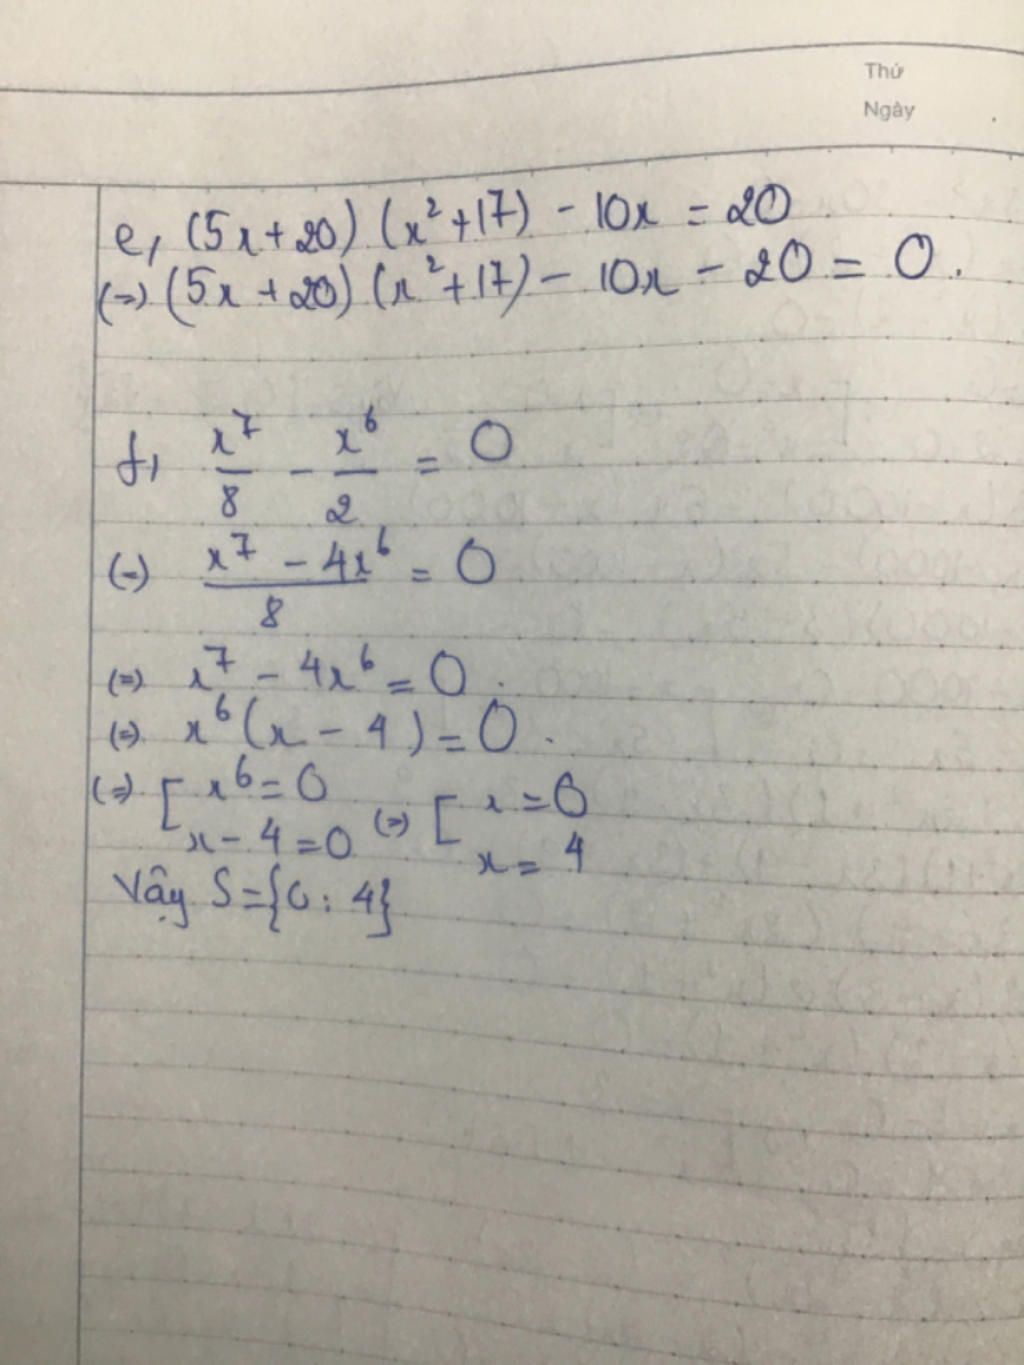 Thứ
Ngày
e, (5x+20) (x²+17) - 10x = 20
(=) (5x+20) (x²+17) - 10x - 20 = 0.
f, x⁷/8 - x⁶/2 = 0
(=) (x⁷ - 4x⁶)/8 = 0
(=) x⁷ - 4x⁶ = 0.
(=) x⁶(x - 4) = 0.
(=) [ x⁶ = 0 (=) [ x = 0
x - 4 = 0 x = 4
Vậy S={0; 4}